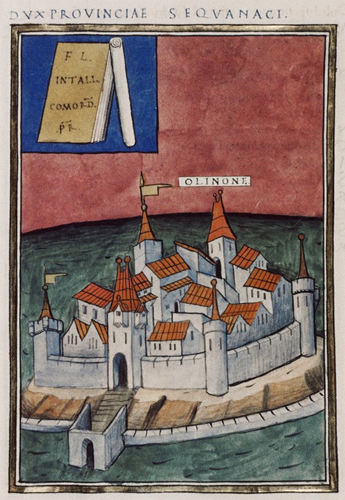 DVX PROVINCIAE SEQVANACI.
F L.
INTALL
COMORD̄.
P̄R.
OLINONE.